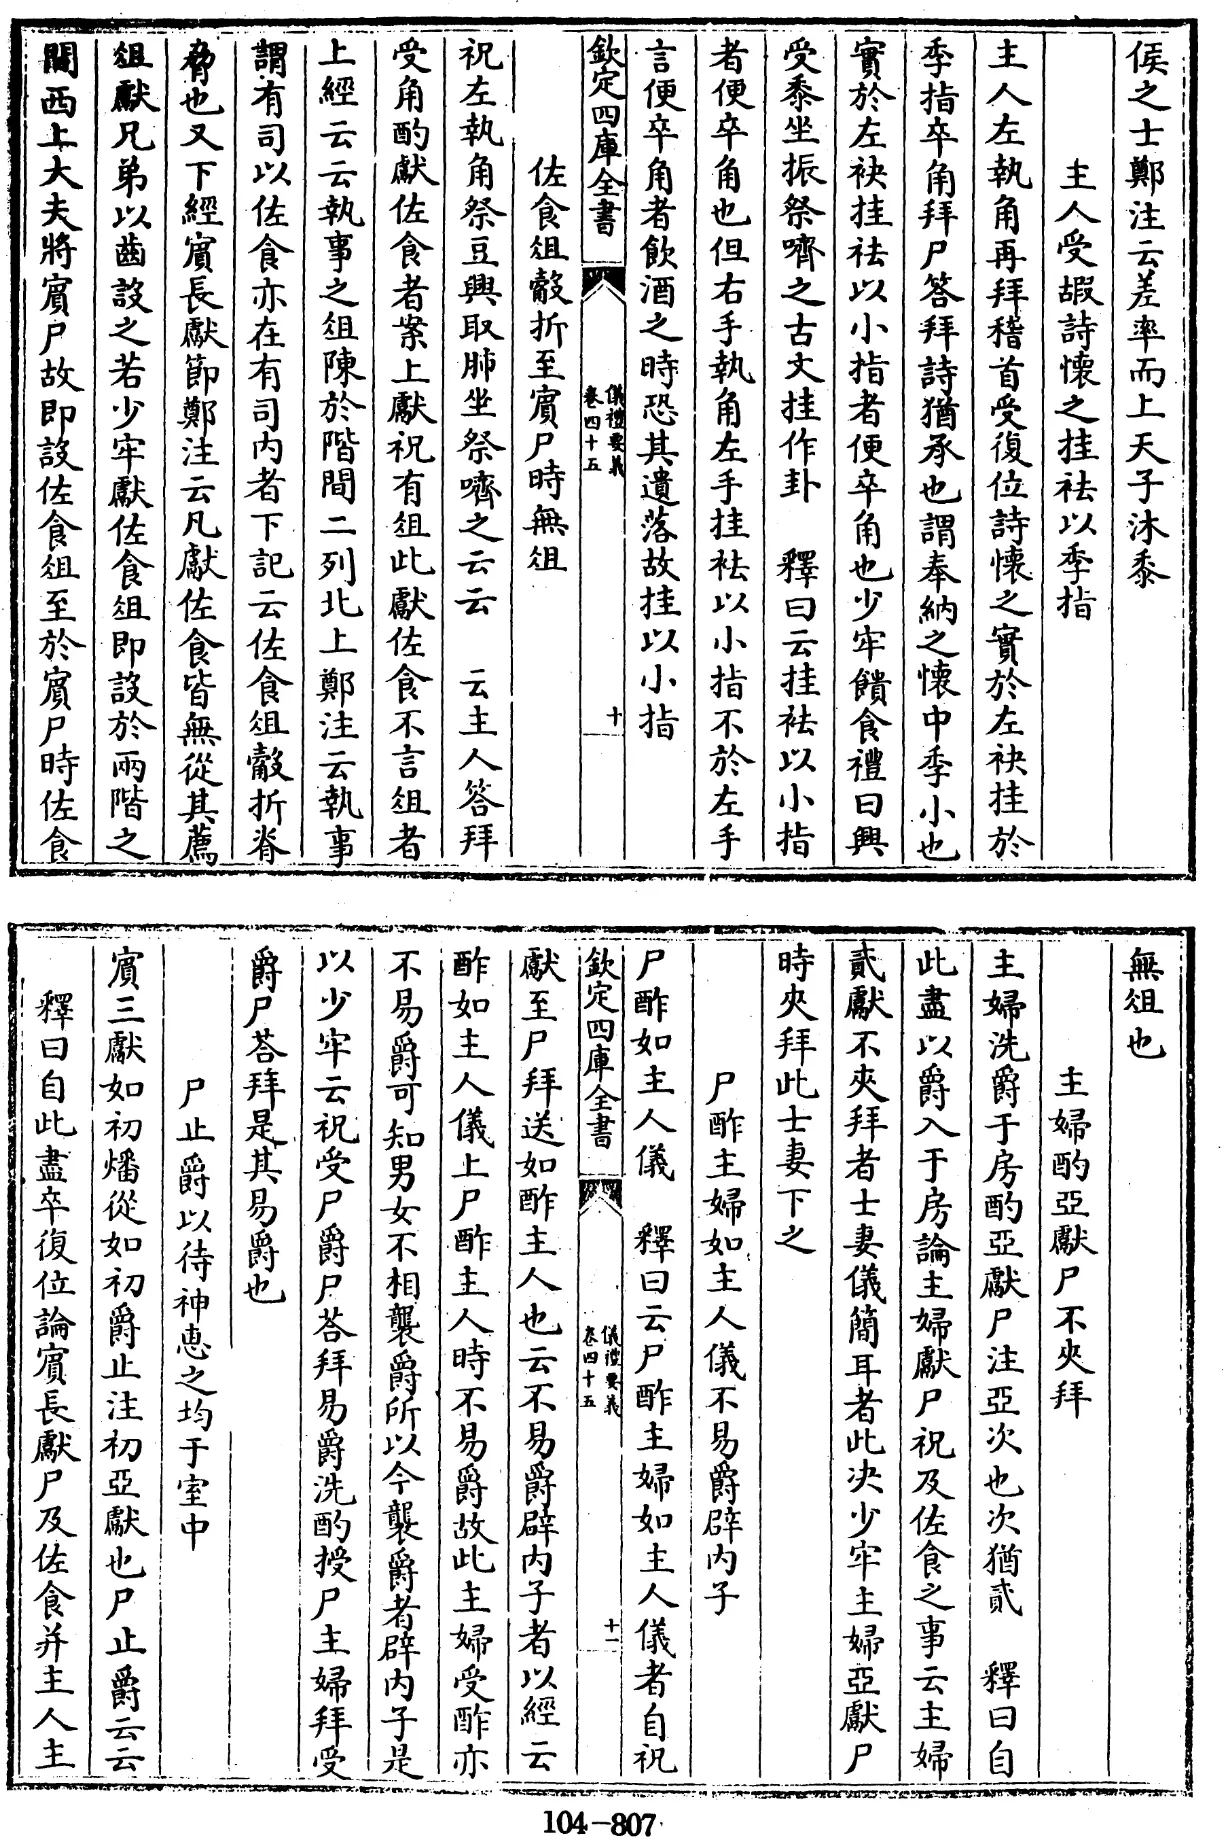 侯之士鄭注云差率而上天子沐黍
主人受嘏詩懷之挂袪以季指
主人左執角再拜稽首受復位詩懷之實於左袂挂於
季指卒角拜尸答拜詩猶承也謂奉納之懷中季小也
實於左袂挂袪以小指者便卒角也少牢饋食禮曰興
受黍坐振祭嚌之古文挂作卦　釋曰云挂袪以小指
者便卒角也但右手執角左手挂袪以小指不於左手
言便卒角者飲酒之時恐其遺落故挂以小指
欽定四庫全書
儀禮要義
卷四十五
十
佐食俎觳折至賓尸時無俎
祝左執角祭豆興取肺坐祭嚌之云云　云主人答拜
受角酌獻佐食者案上獻祝有俎此獻佐食不言俎者
上經云云執事之俎陳於階間二列北上鄭注云執事
謂有司以佐食亦在有司內者下記云佐食俎觳折脊
脅也又下經賓長獻節鄭注云凡獻佐食皆無從其薦
俎獻兄弟以齒設之若少牢獻佐食俎即設於兩階之
間西上大夫將賓尸故即設佐食俎至於賓尸時佐食
無俎也
主婦酌亞獻尸不夾拜
主婦洗爵于房酌亞獻尸注亞次也次猶貳　釋曰自
此盡以爵入于房論主婦獻尸祝及佐食之事云主婦
貳獻不夾拜者士妻儀簡耳者此决少牢主婦亞獻尸
時夾拜此士妻下之
尸酢主婦如主人儀不易爵辟內子
尸酢如主人儀　釋曰云尸酢主婦如主人儀者自祝
欽定四庫全書
儀禮要義
卷四十五
十一
獻至尸拜送如酢主人也云不易爵辟內子者以經云
酢如主人儀上尸酢主人時不易爵故此主婦受酢亦
不易爵可知男女不相襲爵所以今襲爵者辟內子是
以少牢云祝受尸爵尸荅拜易爵洗酌授尸主婦拜受
爵尸荅拜是其易爵也
尸止爵以待神惠之均于室中
賓三獻如初燔從如初爵止注初亞獻也尸止爵云云
釋曰自此盡卒復位論賓長獻尸及佐食并主人主
104-807